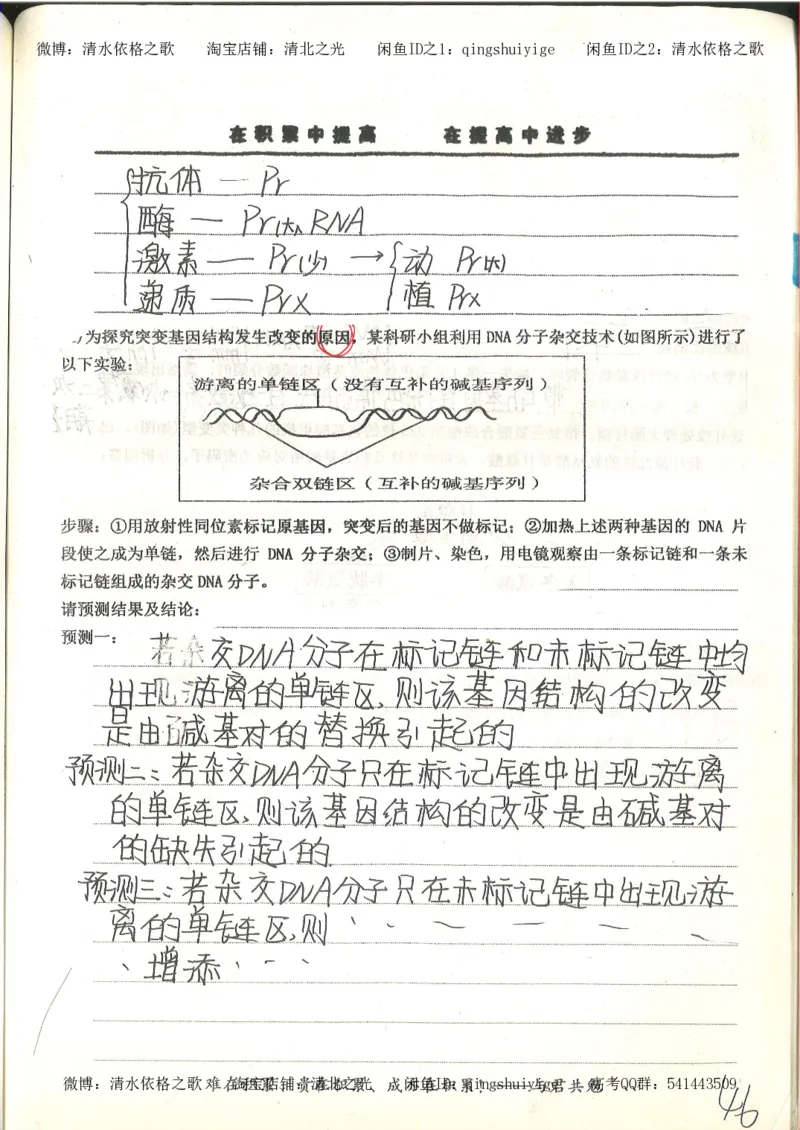 微博：清水依格之歌　　淘宝店铺：清北之光　　闲鱼ID之1：qingshuiyige　　闲鱼ID之2：清水依格之歌
在积累中提高　　在提高中进步
抗体 — Pr
酶 — Pr(大) RNA
激素 — Pr(少) → 动 Pr(大)
递质 — Pr× 植 Pr×
为探究突变基因结构发生改变的原因，某科研小组利用 DNA 分子杂交技术(如图所示)进行了
以下实验：
游离的单链区（没有互补的碱基序列）
杂合双链区（互补的碱基序列）
步骤：①用放射性同位素标记原基因，突变后的基因不做标记；②加热上述两种基因的 DNA 片
段使之成为单链，然后进行 DNA 分子杂交；③制片、染色，用电镜观察由一条标记链和一条未
标记链组成的杂交 DNA 分子。
请预测结果及结论：
预测一：若杂交DNA分子在标记链和未标记链中均
出现游离的单链区，则该基因结构的改变
是由碱基对的替换引起的
预测二：若杂交DNA分子只在标记链中出现游离
的单链区，则该基因结构的改变是由碱基对
的缺失引起的
预测三：若杂交DNA分子只在未标记链中出现游
离的单链区，则
增添
微博：清水依格之歌　淘宝店铺：清北之光　闲鱼ID：qingshuiyige　高考QQ群：541443509
46